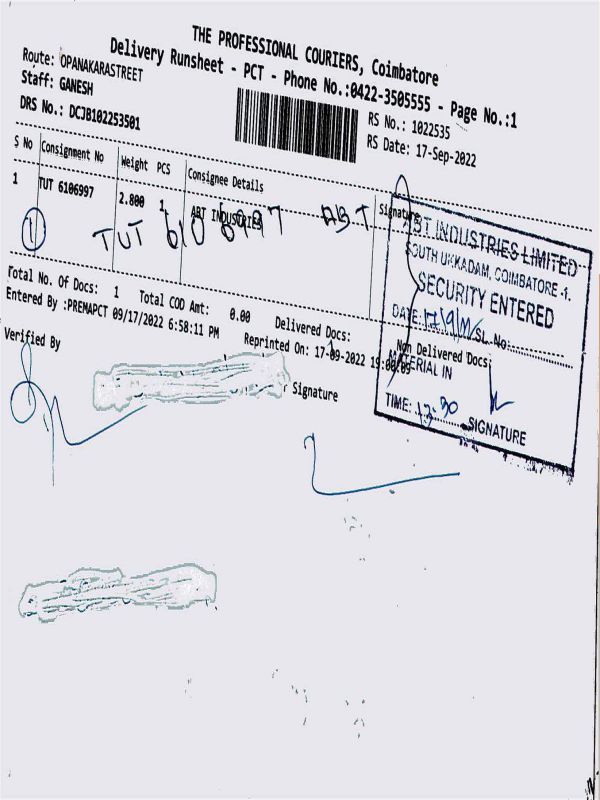 THE PROFESSIONAL COURIERS, Coimbatore
Delivery Runsheet - PCT - Phone No.:0422-3505555 - Page No.:1
Route: OPANAKARASTREET
Staff: GANESH
DRS No.: DCJB102253501
RS No.: 1022535
RS Date: 17-Sep-2022
S No Consignment No Weight PCS Consignee Details Signature
1 TUT 6106997 2.800 1 ABT INDUSTRIES
1 TUT 6106997 ABT
ABT INDUSTRIES LIMITED
SOUTH UKKADAM, COIMBATORE -1.
SECURITY ENTERED
DATE: 17/9/ SL.No:
MATERIAL IN
TIME: SIGNATURE
Total No. Of Docs: 1 Total COD Amt: 0.00 Delivered Docs: Non Delivered Docs:
Entered By :PREMAPCT 09/17/2022 6:58:11 PM Reprinted On: 17-09-2022
Verified By
Signature